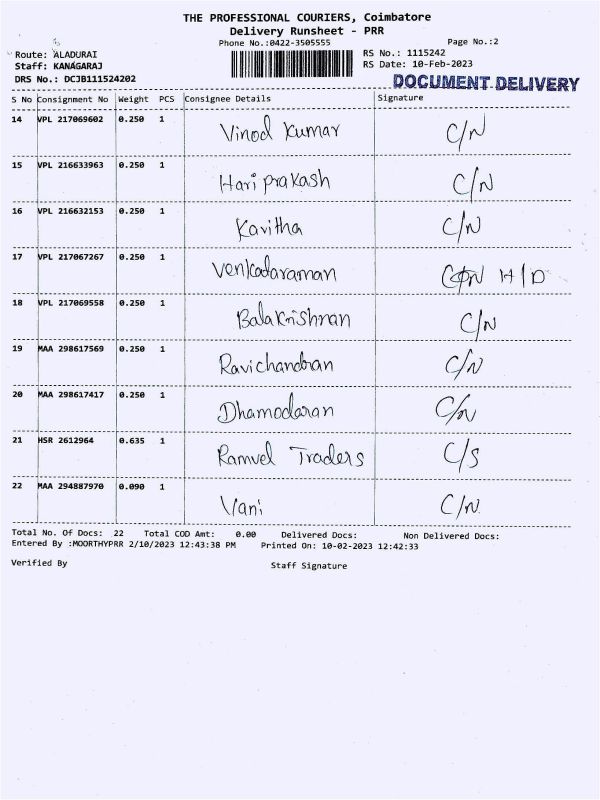 THE PROFESSIONAL COURIERS, Coimbatore
Delivery Runsheet - PRR
Phone No.:0422-3505555 Page No.:2
Route: ALADURAI RS No.: 1115242
Staff: KANAGARAJ RS Date: 10-Feb-2023
DRS No.: DCJB111524202
DOCUMENT DELIVERY
S No Consignment No Weight PCS Consignee Details Signature
14 VPL 217069602 0.250 1 Vinod Kumar C/N
15 VPL 216633963 0.250 1 Hari prakash C/N
16 VPL 216632153 0.250 1 Kavitha C/N
17 VPL 217067267 0.250 1 Venkadaraman H/D
18 VPL 217069558 0.250 1 Balakrishnan C/N
19 MAA 298617569 0.250 1 Ravichandran C/N
20 MAA 298617417 0.250 1 Dhamodaran C/N
21 HSR 2612964 0.635 1 Ramvel Traders C/S
22 MAA 294887970 0.090 1 Vani C/N
Total No. Of Docs: 22 Total COD Amt: 0.00 Delivered Docs: Non Delivered Docs:
Entered By :MOORTHYPRR 2/10/2023 12:43:38 PM Printed On: 10-02-2023 12:42:33
Verified By Staff Signature